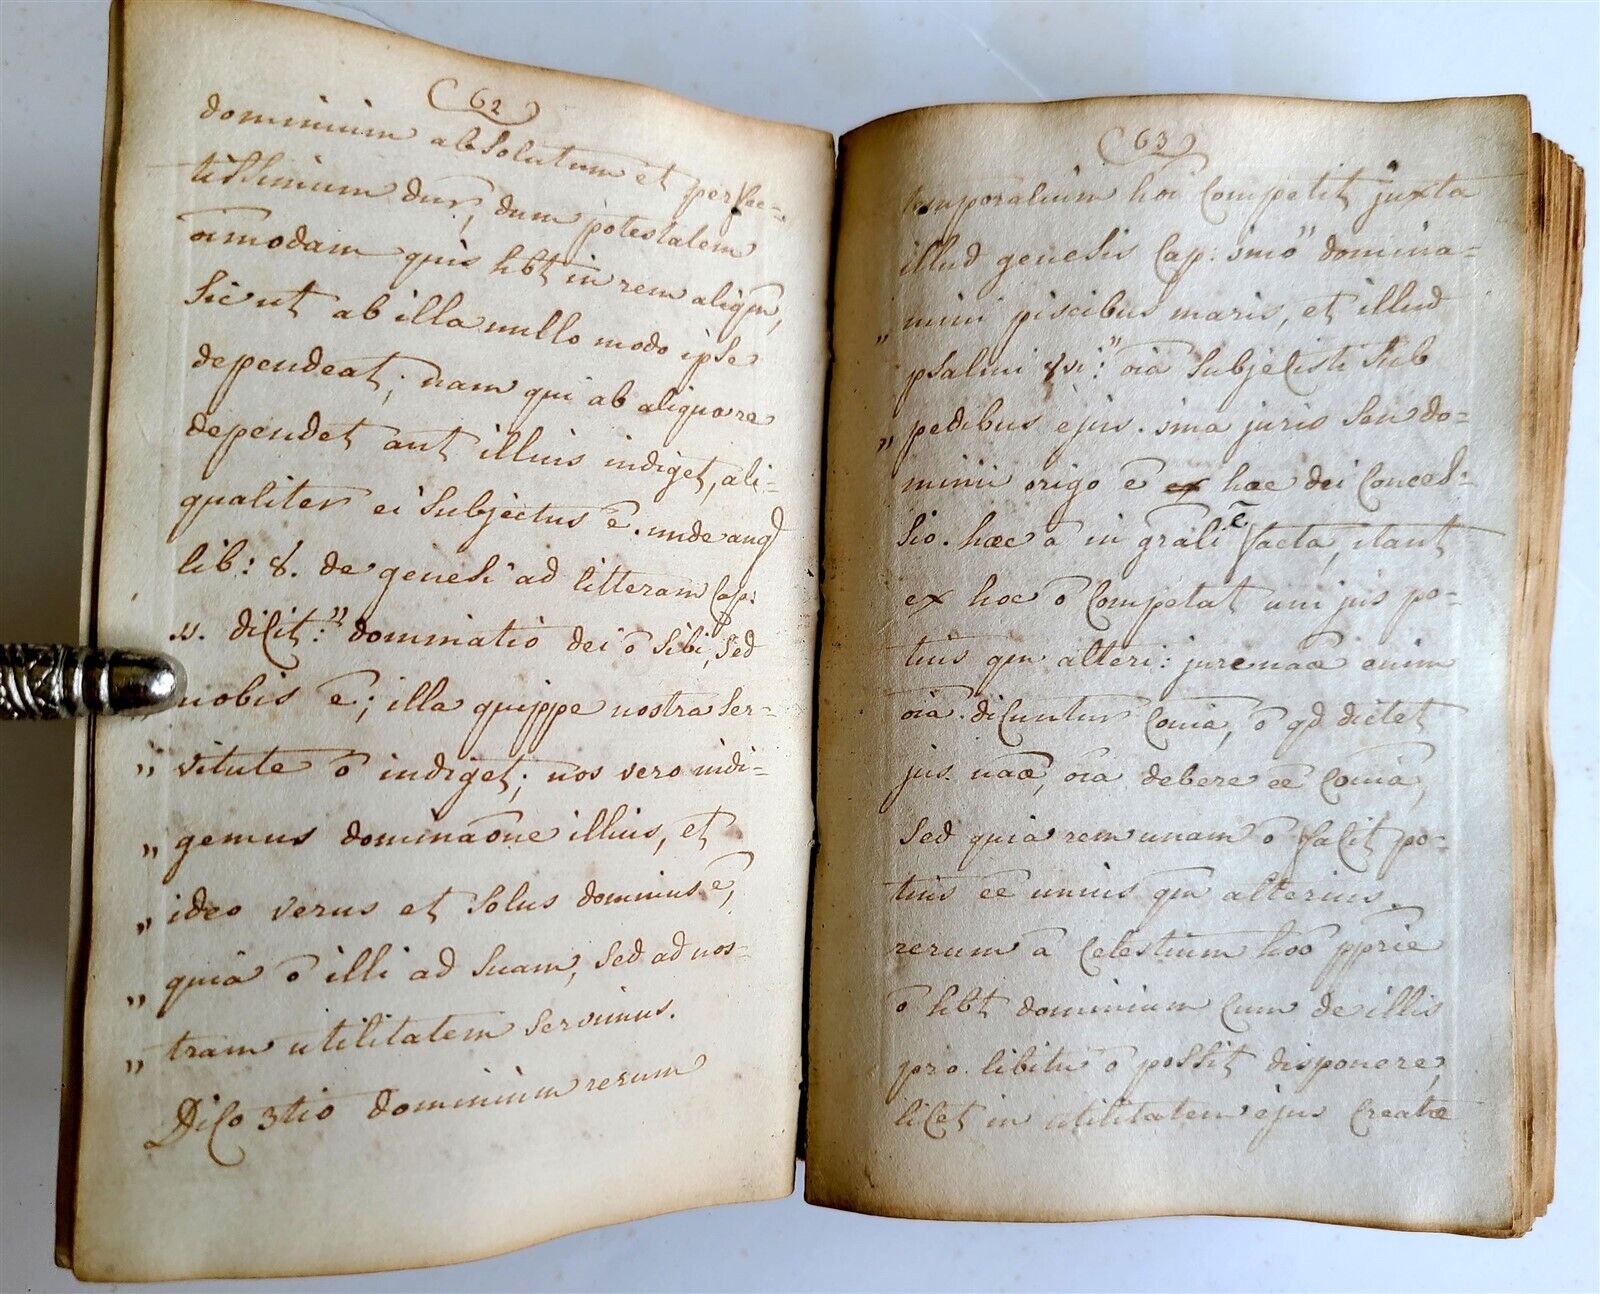 62
dominium absolutum et perfec-
tissimum dur, dum potestatem
oīmodam quis hbt in rem aliqm,
sicut ab illa nullo modo ipse
dependeat; nam qui ab aliqua re
dependet aut illius indiget, ali-
qualiter ei subjectus ē. unde aug
lib: 8. de genesi ad litteram Cap:
11. dicit: " dominatio dei ō sibi, sed
nobis ē; illa quippe nostra ser-
" vitute ō indiget; nos vero indi-
" gemus dominaōne illius, et
" ideo verus et solus dominus ē,
" quia ō illi ad suam, sed ad nos-
" tram utilitatem servimus.
Dico 3tio dominium rerum
63
temporalium hoī competit juxta
illud genesis Cap: 1mo " domina-
" mini piscibus maris, et illud
psalmi 8vi: " oīa subjecisti sub
" pedibus ejus. 1ma juris seu do-
minii origo ē ex haec dei conces-
sio. haec ā in grāli ē facta, itaut
ex hoc ō competat uni jus po-
tius qm alteri: jure naāe enim
oīa dicuntur coīnia, ō qd dictet
jus naāe, oīa debere eē coīnia,
sed quia rem unam ō facit po-
tius eē unius qm alterius.
rerum ā celestium hoō pprie
ō hbt dominium cum de illis
pro libitu ō possit disponere,
licet in utilitatem ejus creatae